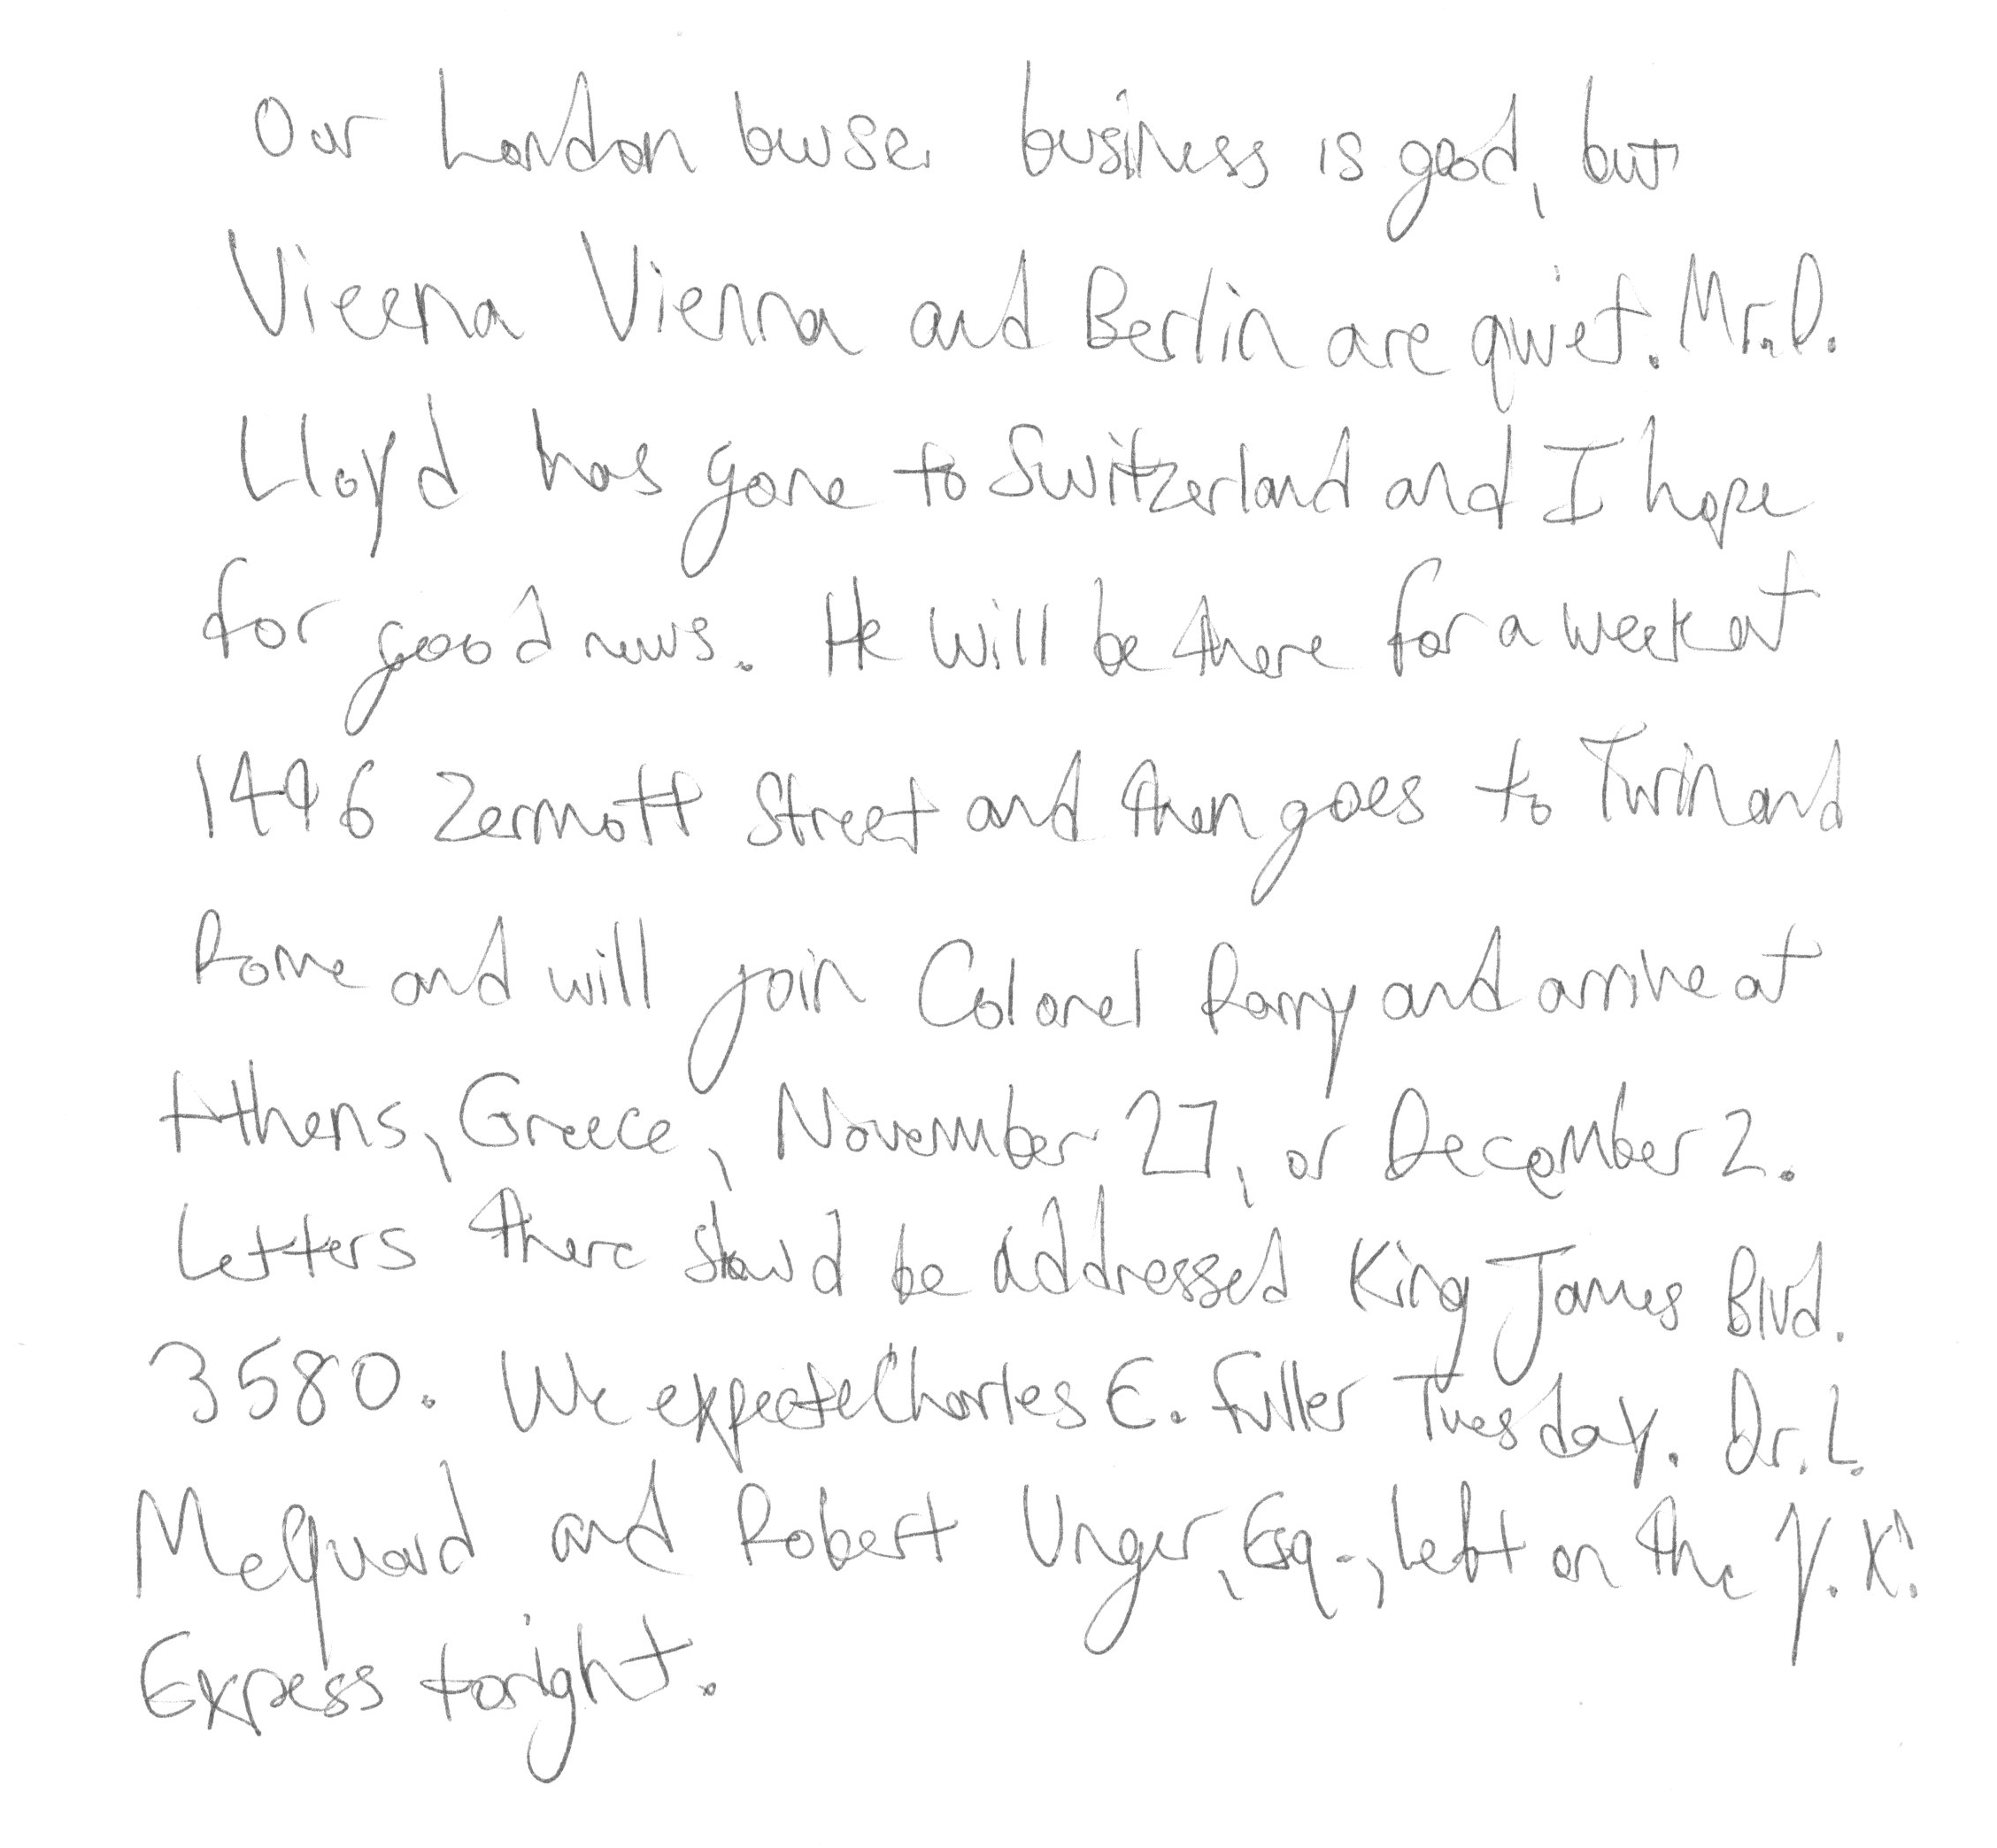 Our London buse business is good, but
Vieena Vienna and Berlin are quiet. Mr. D.
Lloyd has gone to Switzerland and I hope
for good news. He will be there for a week at
1496 Zermott Street and then goes to Turin and
Rome and will join Colonel Parry and arrive at
Athens, Greece, November 27, or December 2.
Letters there should be addressed King James Blvd.
3580. We expecte Charles E. Fuller Tuesday. Dr. L.
McQuaid and Robert Unger, Esq., left on the Y. X.
Express tonight.